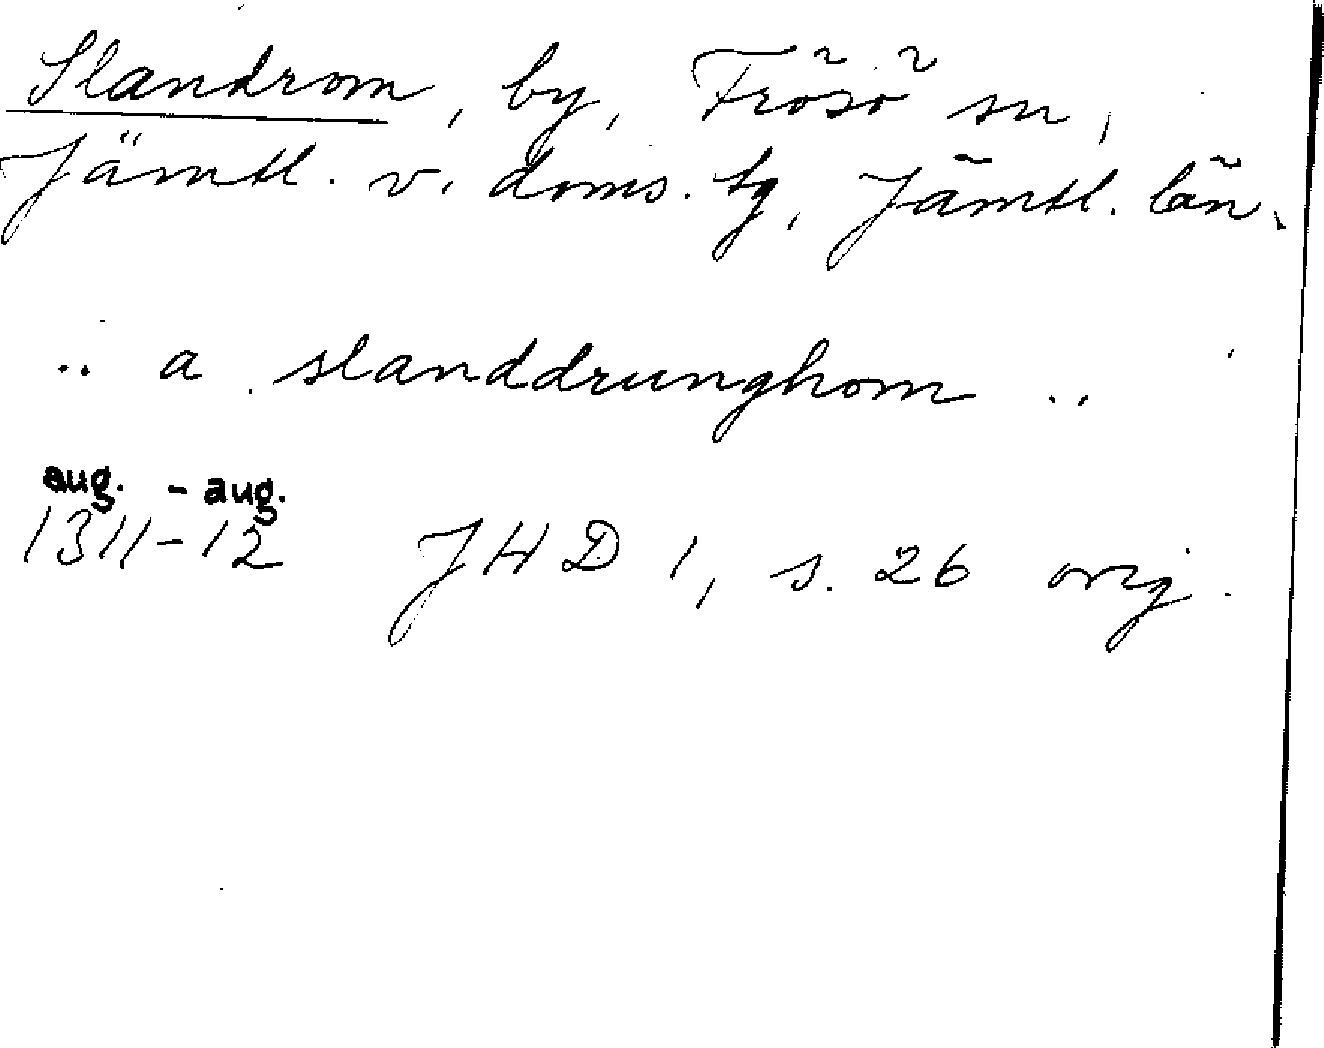 Slandrom, by, Frösö sn,
Jämtl. v. doms. tg, Jämtl. län.
.. a slanddrunghom ..
aug. - aug.
1311-12 JHD 1, s. 26 orig.